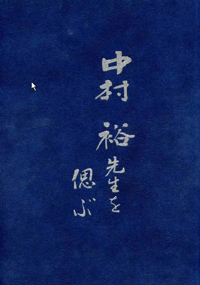 中村 裕先生を
偲ぶ